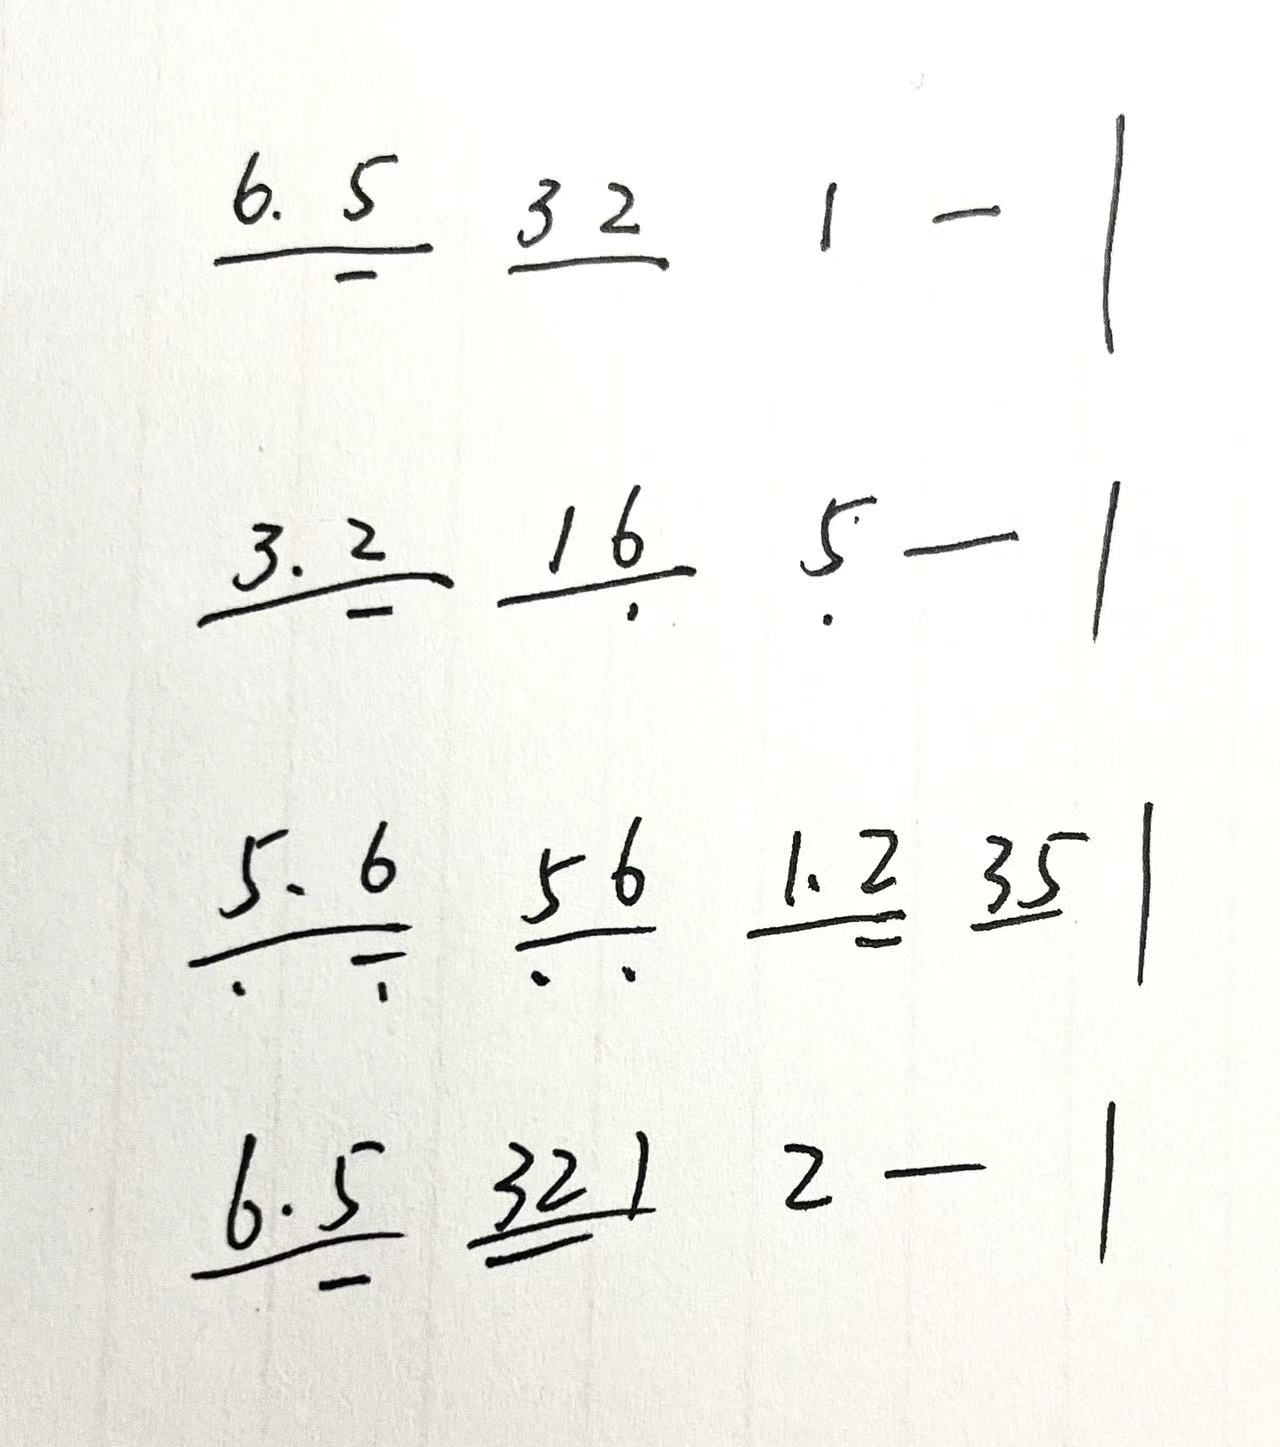 6. 5 3 2 1 – |
3. 2 1 6 5 – |
5. 6 5 6 1. 2 3 5 |
6. 5 3 2 1 2 – |